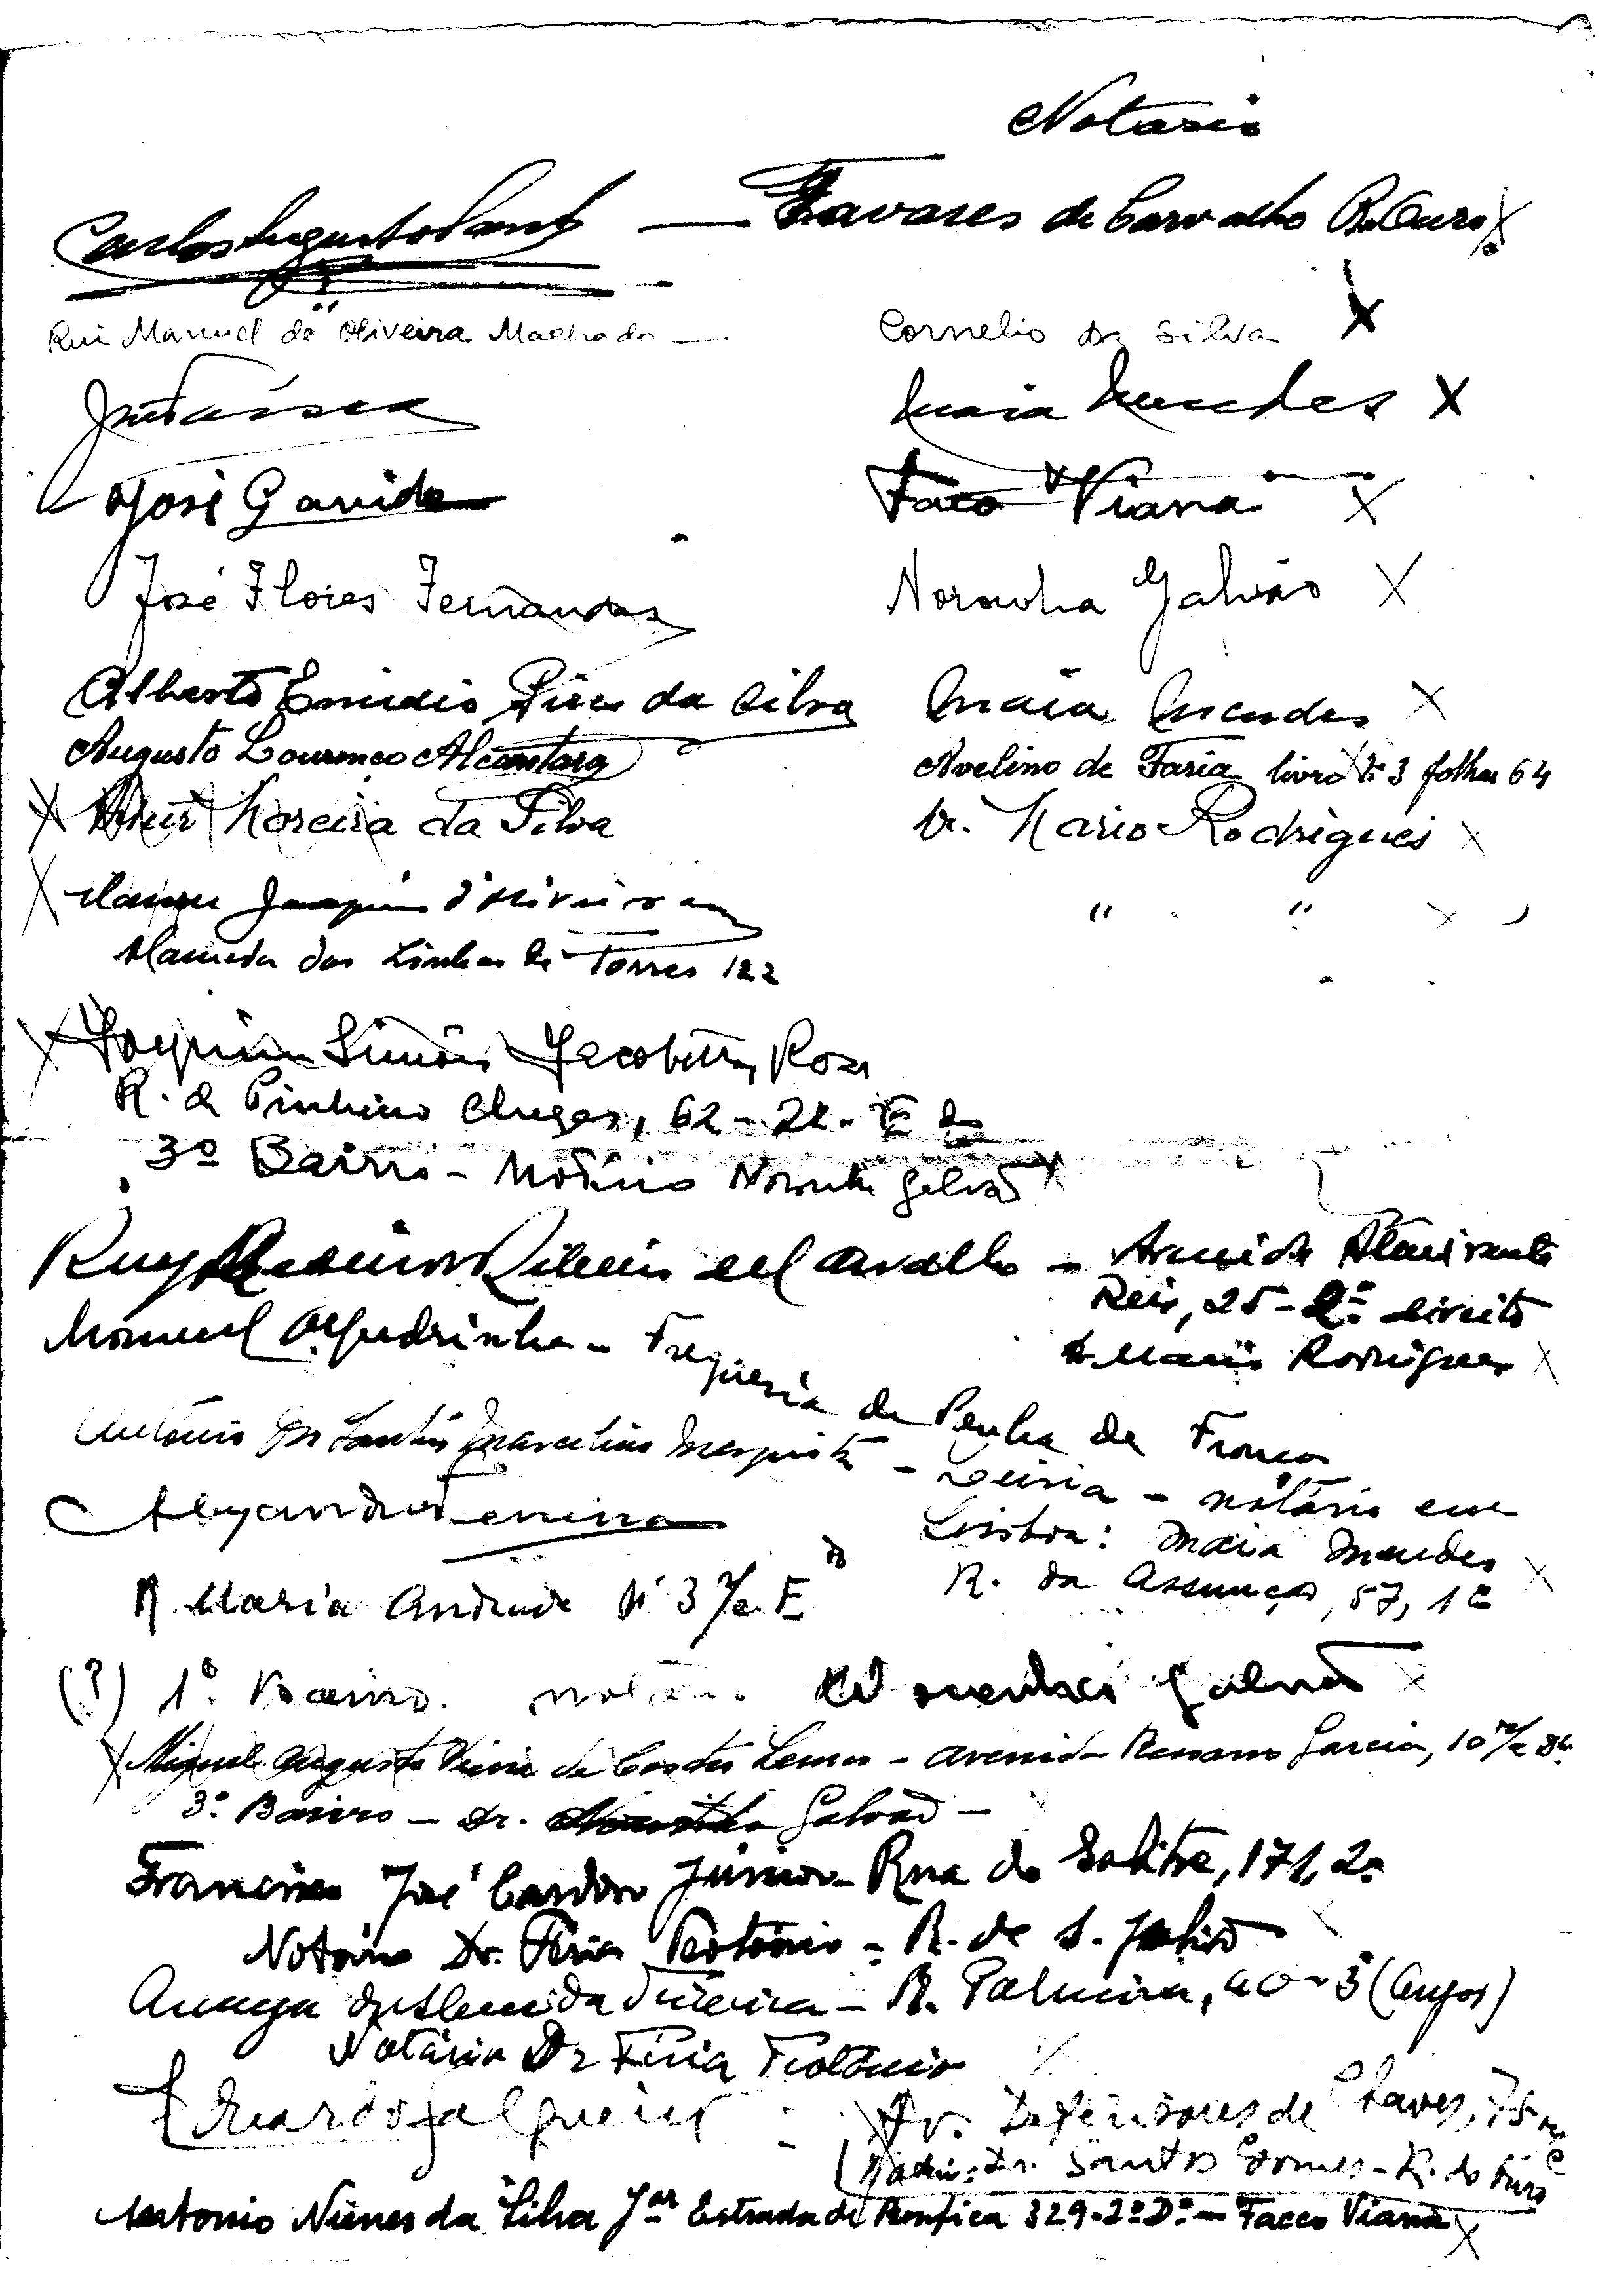 Notario
Carlos Augusto — Tavares de Carvalho R. Ouro X
Rui Manuel de Oliveira Machado — Cornelio da Silva X
Maia Mendes X
José Garrido Facco Viana X
José Flores Fernandes Noronha Galvão X
Alberto Emidio Pires da Silva Maia Mendes X
Augusto Lourenço Alcantara Avelino de Faria livro Nº 3 folhas 64
X Moreira da Silva Dr. Mario Rodrigues X
X Joaquim d'Oliveira " " X
Alameda das Linhas de Torres 122
X Joaquim Simões Rosa
R. de Pinheiro Chagas, 62-
3º Bairro - Notário Noronha Galvão X
Ruy Ribeiro de Carvalho - Avenida Almirante
Reis, 25-2º direito
Mario Rodrigues X
Manuel - Freguesia da Penha de França
António dos Santos Marcelino Mesquita - Leiria - notário em
Lisboa: Maia Mendes X
R. da Assunção, 57, 1º
Alexandre
R. Maria Andrade Nº 3 r/c E
(?) 1º Bairro. notário. Noronha Galvão X
X Miguel Augusto de Castro Lemos - Avenida Ressano Garcia, 10 r/c
3º Bairro - Dr. Noronha Galvão -
Francisco José Cardoso Júnior - Rua do Salitre, 171, 2º
Notário Dr. Feria Teotónio - R. de S. Julião
de Almeida - R. Palmira, 40-3 (Anjos)
Notário Dr Feria Teotónio
Eduardo Salgueiro - Av. Defensores de Chaves, 75
(Notário: Dr. Santos Gomes - R. do Ouro
Antonio Nunes da Silva Jor Estrada de Benfica 329-2º Dº - Facco Viana X